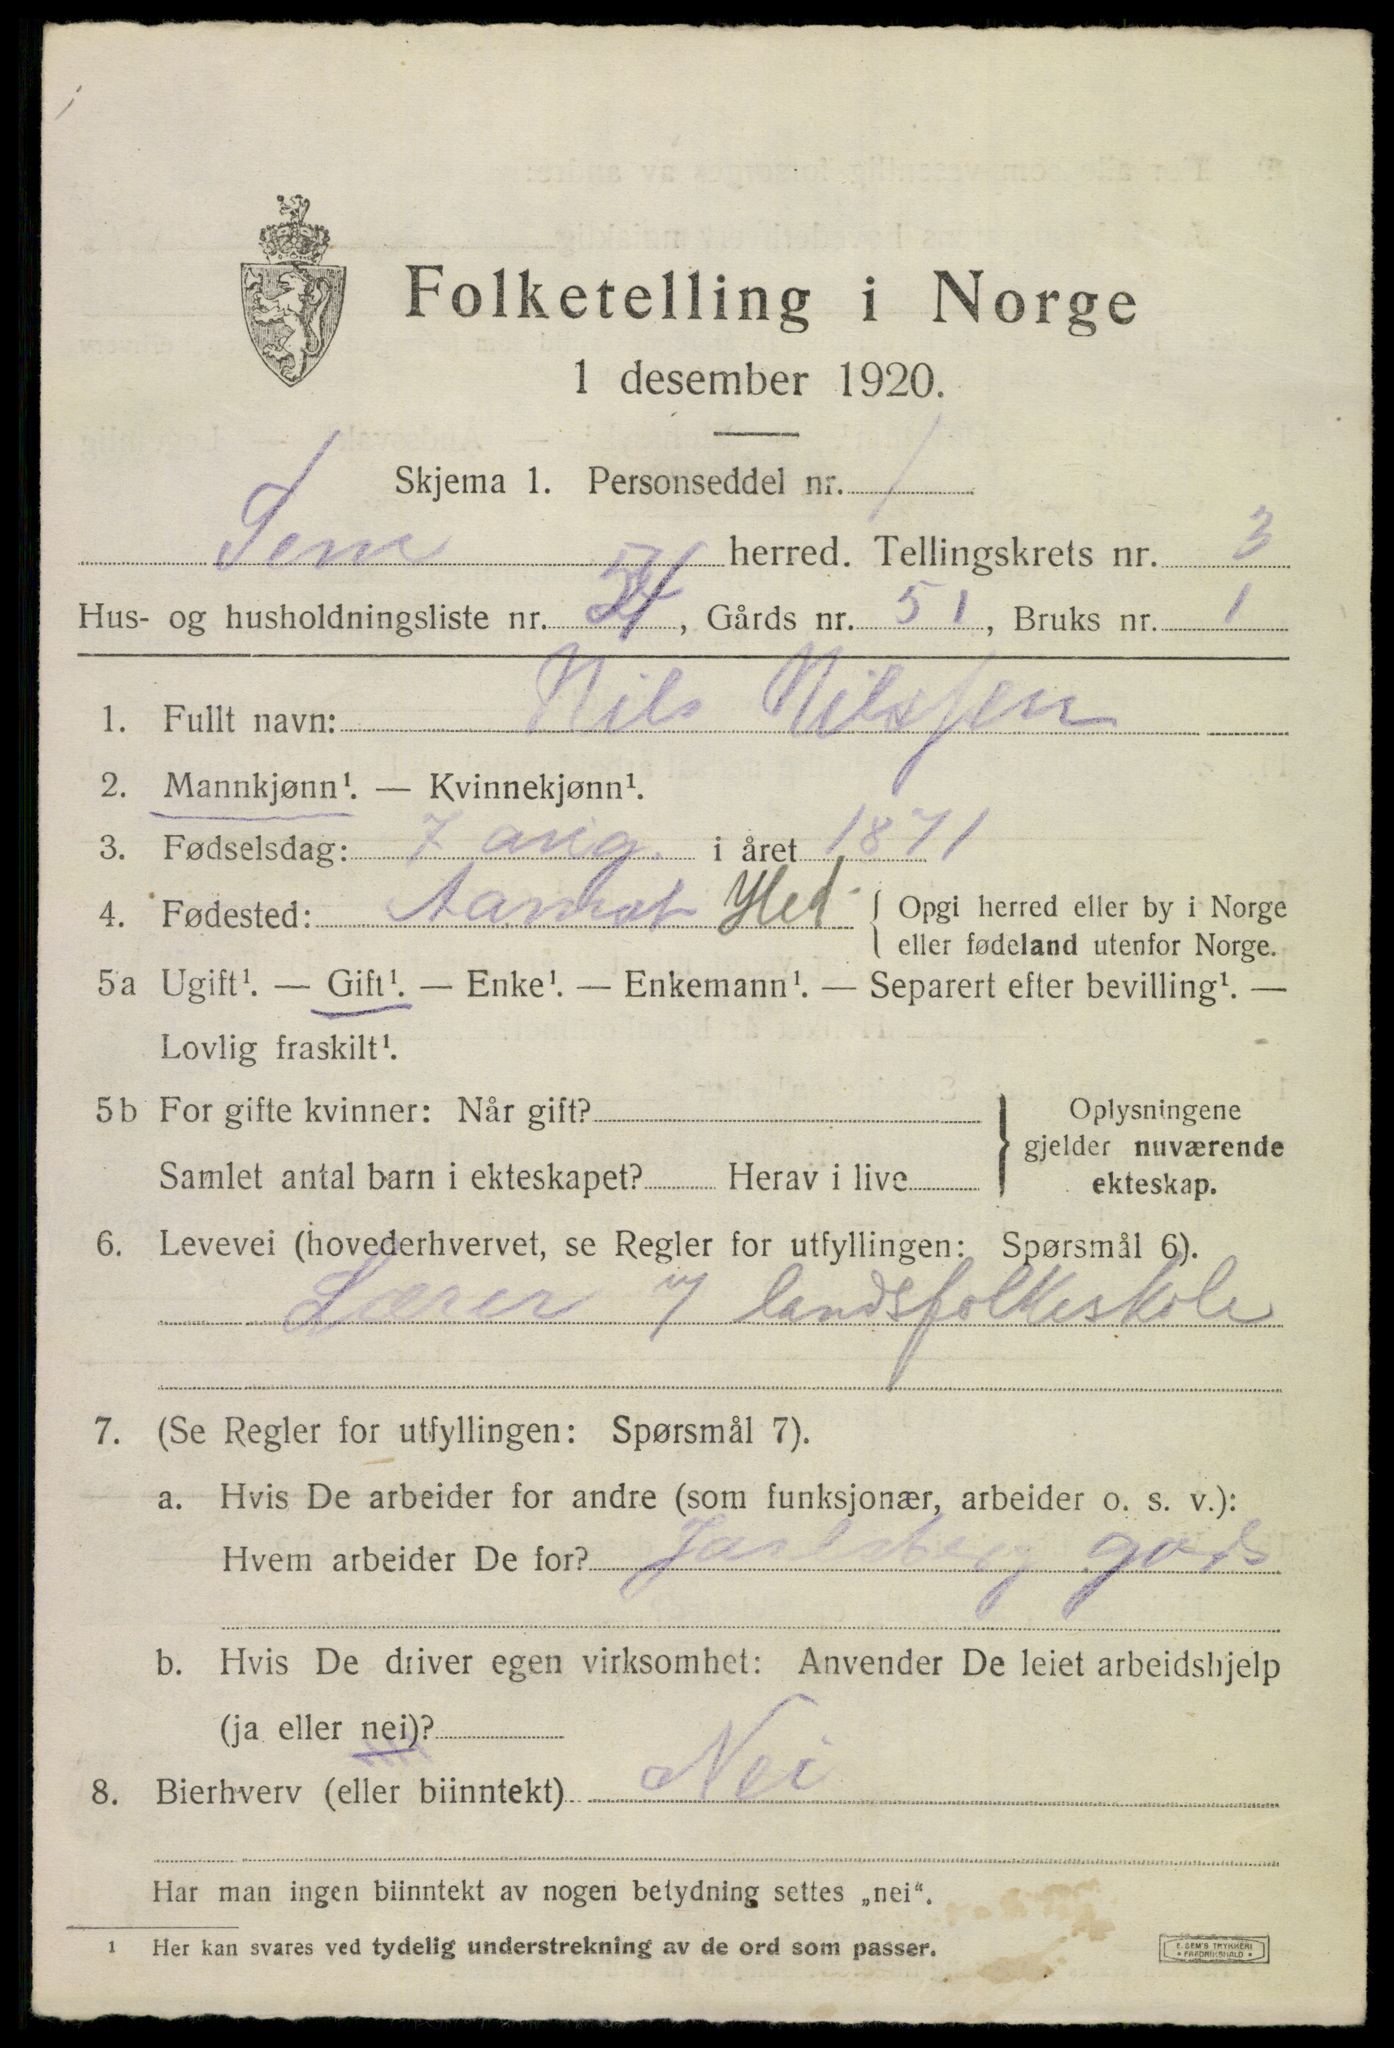 Folketelling i Norge
1 desember 1920.
Skjema 1. Personseddel nr. 1
Sem herred. Tellingskrets nr. 3
Hus- og husholdningsliste nr. , Gårds nr. 51, Bruks nr. 1
1. Fullt navn: Nils Nilssen
2. Mannkjønn¹. — Kvinnekjønn¹.
3. Fødselsdag: 7 aug. i året 1871
4. Fødested: Aamot Hed { Opgi herred eller by i Norge
eller fødeland utenfor Norge.
5a Ugift¹. — Gift¹. — Enke¹. — Enkemann¹. — Separert efter bevilling¹. —
Lovlig fraskilt¹.
5b For gifte kvinner: Når gift? } Oplysningene
gjelder nuværende
Samlet antal barn i ekteskapet? Herav i live
ekteskap.
6. Levevei (hovederhvervet, se Regler for utfyllingen: Spørsmål 6).
Lærer v/ landsfolkeskole
7. (Se Regler for utfyllingen: Spørsmål 7).
a. Hvis De arbeider for andre (som funksjonær, arbeider o. s. v.):
Hvem arbeider De for? Jarlsberg gods
b. Hvis De driver egen virksomhet: Anvender De leiet arbeidshjelp
(ja eller nei)?
8. Bierhverv (eller biinntekt) Nei
Har man ingen biinntekt av nogen betydning settes „nei“.
1 Her kan svares ved tydelig understrekning av de ord som passer.
E. SEM'S TRYKKERI
* FREDRIKSHALD *